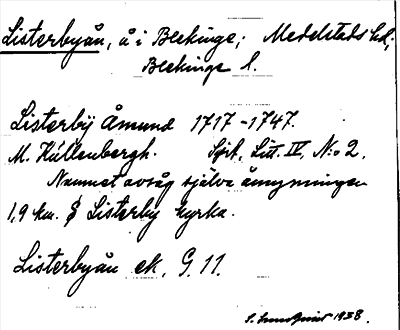 Listerbyån, å i Blekinge; Medelstads hd;
Blekinge l.
Listerbÿ Åmund 1717-1747.
M. Küllenbergh. Sjök. Litt. IV, N:o 2.
Namnet avsåg själva åmynningen
1,9 km. S Listerby kyrka.
Listerbyån ek. G. 11.
S. Lundquist 1938.